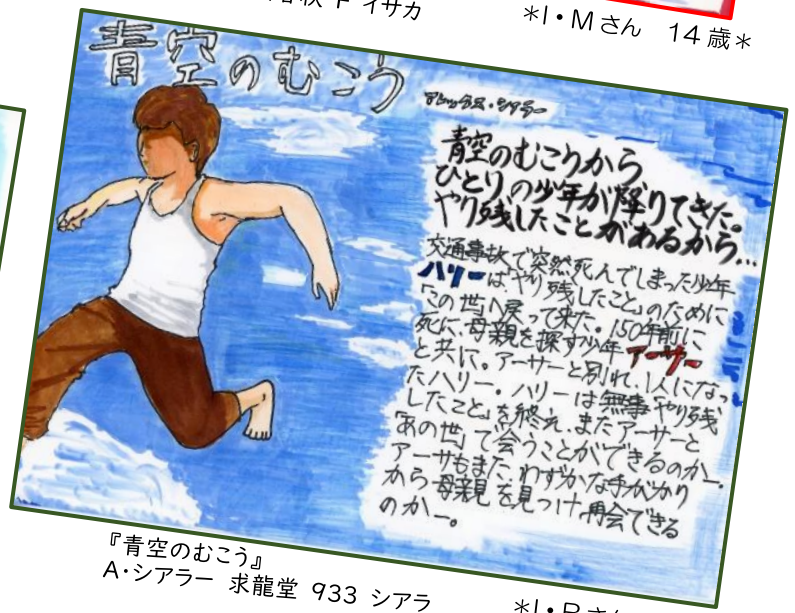 イサカ
*I・Mさん 14歳*
青空のむこう
アレックス・シアラー
青空のむこうから
ひとりの少年が降りてきた。
やり残したことがあるから…
交通事故で突然死んでしまった少年
ハリーは、「やり残したこと」のために
「この世」へ戻って来た。150年前に
死に、母親を探す少年 アーサー
と共に。アーサーと別れ、1人になっ
たハリー。ハリーは無事やり残
したこと」を終え、またアーサーと
「あの世」で会うことができるのかー。
アーサもまた、わずかな手がかり
から母親を見つけ再会できる
のかー。
『青空のむこう』
A・シアラー 求龍堂 933 シアラ